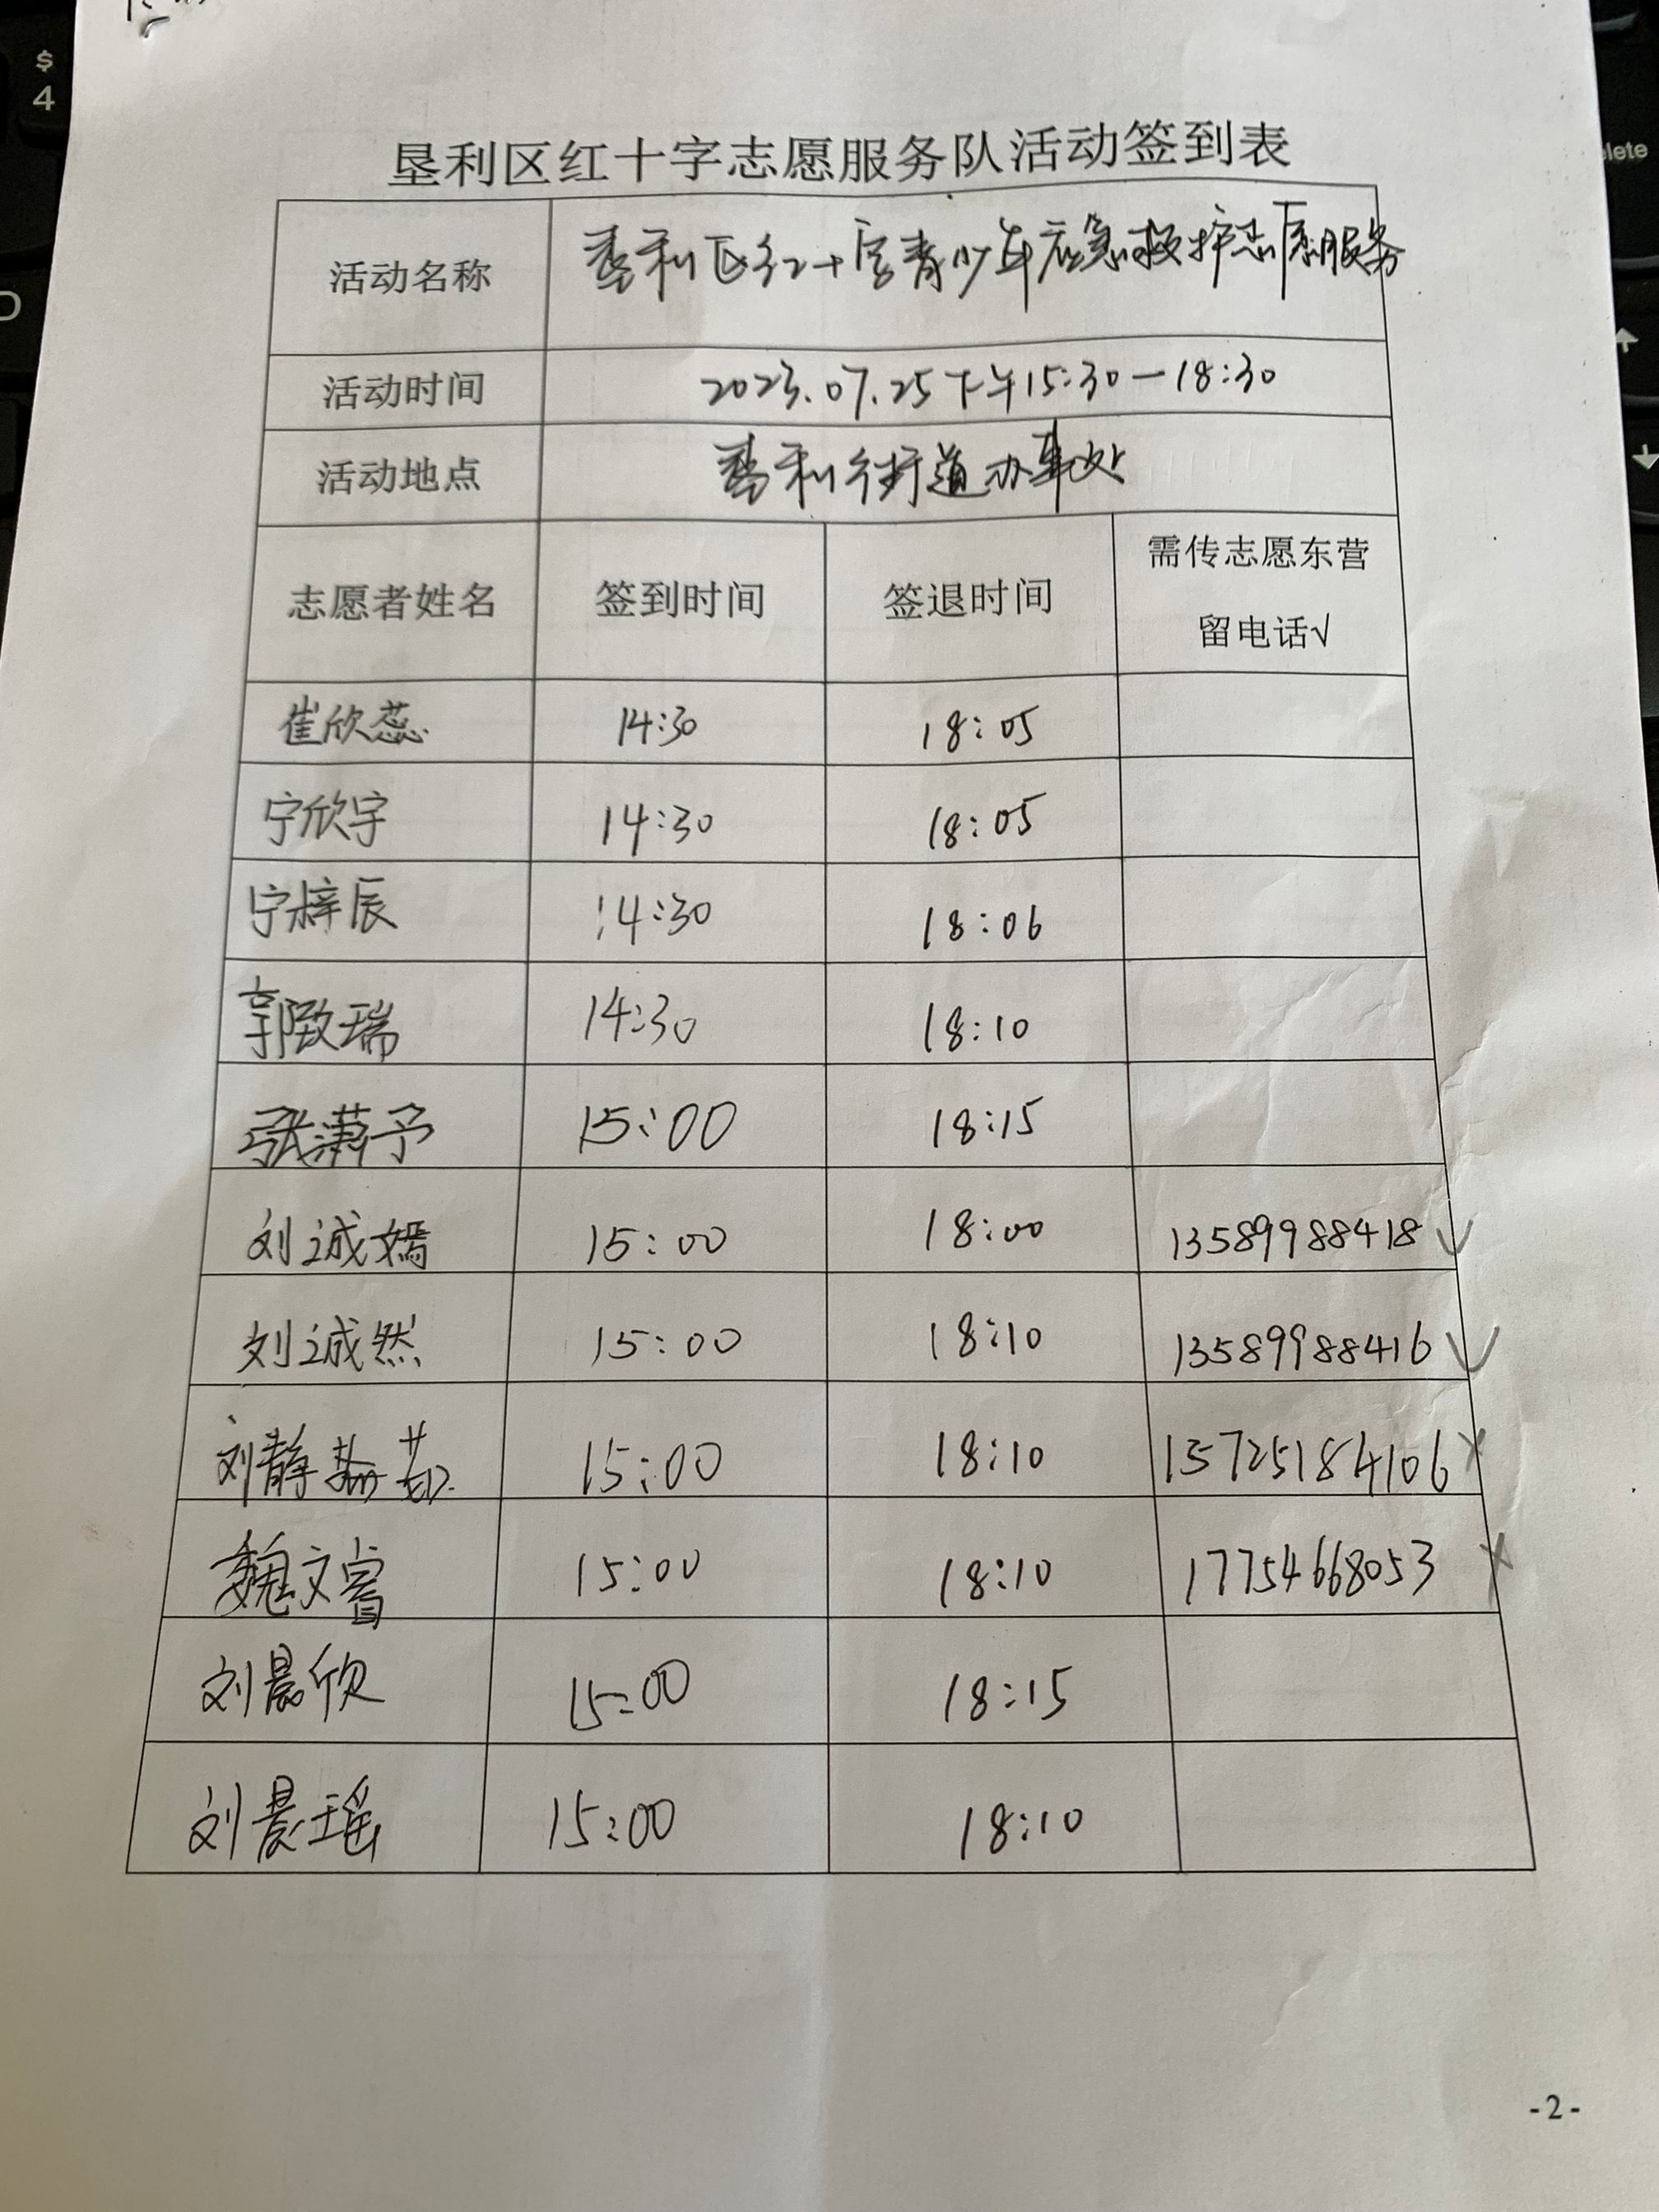 垦利区红十字志愿服务队活动签到表
活动名称 垦利区红十字青少年应急救护志愿服务
活动时间 2023.07.25下午15:30—18:30
活动地点 垦利街道办事处
志愿者姓名 签到时间 签退时间 需传志愿东营
留电话√
崔欣蕊 14:30 18:05
宁欣宇 14:30 18:05
宁梓辰 14:30 18:06
郭致瑞 14:30 18:10
张潇予 15:00 18:15
刘诚嫣 15:00 18:00 13589988418 √
刘诚然 15:00 18:10 13589988416 √
刘静 15:00 18:10 15725184106 ×
魏文睿 15:00 18:10 17754668053 ×
刘晨欣 15:00 18:15
刘晨瑶 15:00 18:10
-2-
$
4
D
lete